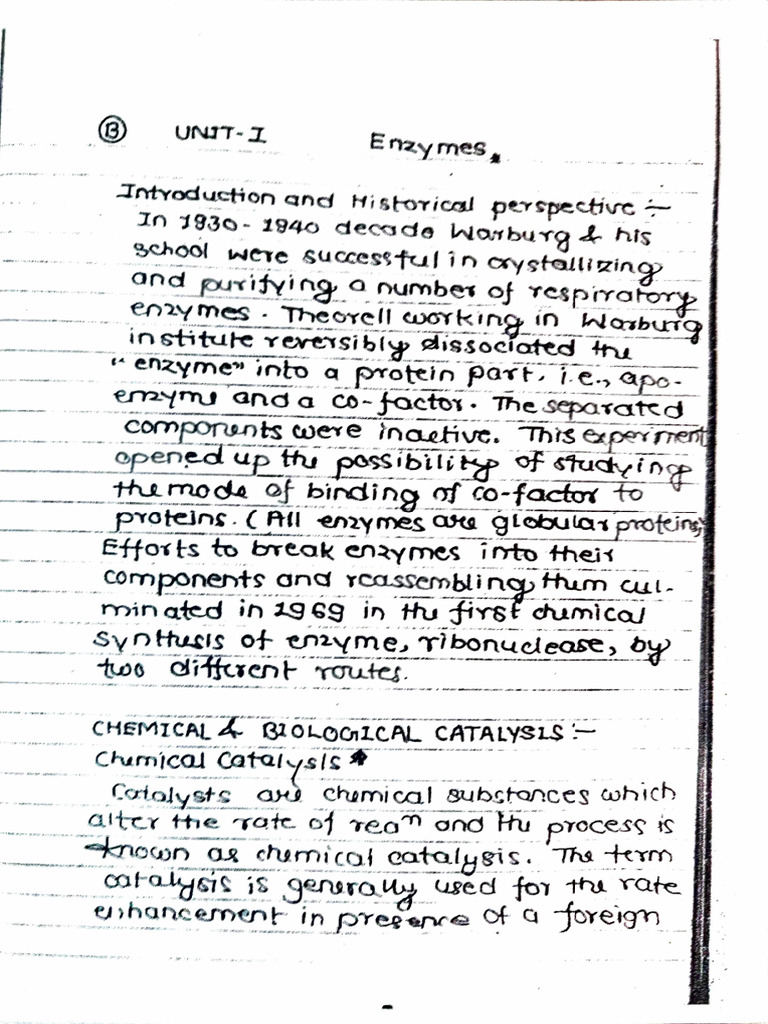 B UNIT-I Enzymes
Introduction and Historical perspective :-
In 1930-1940 decade Warburg & his
school were successful in crystallizing
and purifying a number of respiratory
enzymes. Theorell working in Warburg
institute reversibly dissociated the
"enzyme" into a protein part, i.e., apo-
enzyme and a co-factor. The separated
components were inactive. This experiment
opened up the possibility of studying
the mode of binding of co-factor to
proteins. (All enzymes are globular proteins)
Efforts to break enzymes into their
components and reassembling them cul-
minated in 1969 in the first chemical
synthesis of enzyme, ribonuclease, by
two different routes.
CHEMICAL & BIOLOGICAL CATALYSIS :-
Chemical Catalysis *
Catalysts are chemical substances which
alter the rate of reaⁿ and the process is
known as chemical catalysis. The term
catalysis is generally used for the rate
enhancement in presence of a foreign